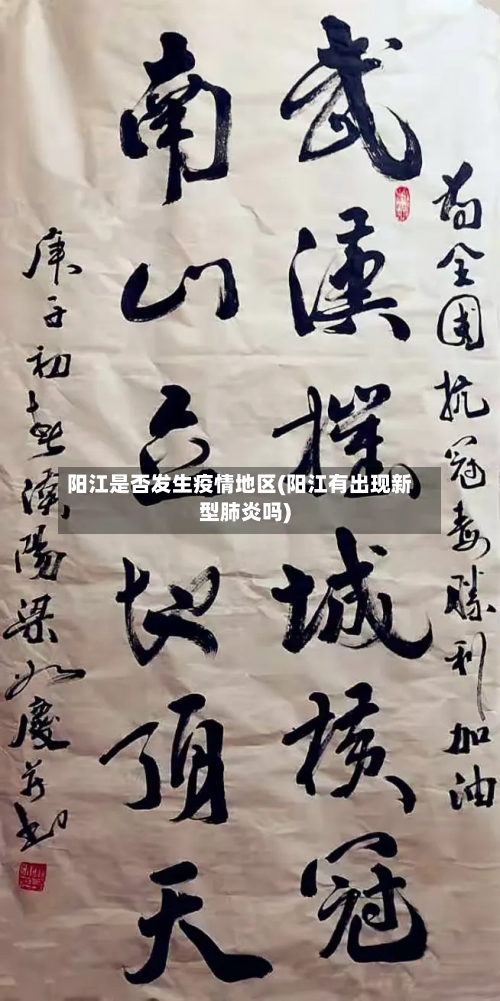 为全国抗冠毒胜利加油
武漢摧城横冠
南山立地頂天
庚子初春南陽梁如慶并书
阳江是否发生疫情地区(阳江有出现新
型肺炎吗)